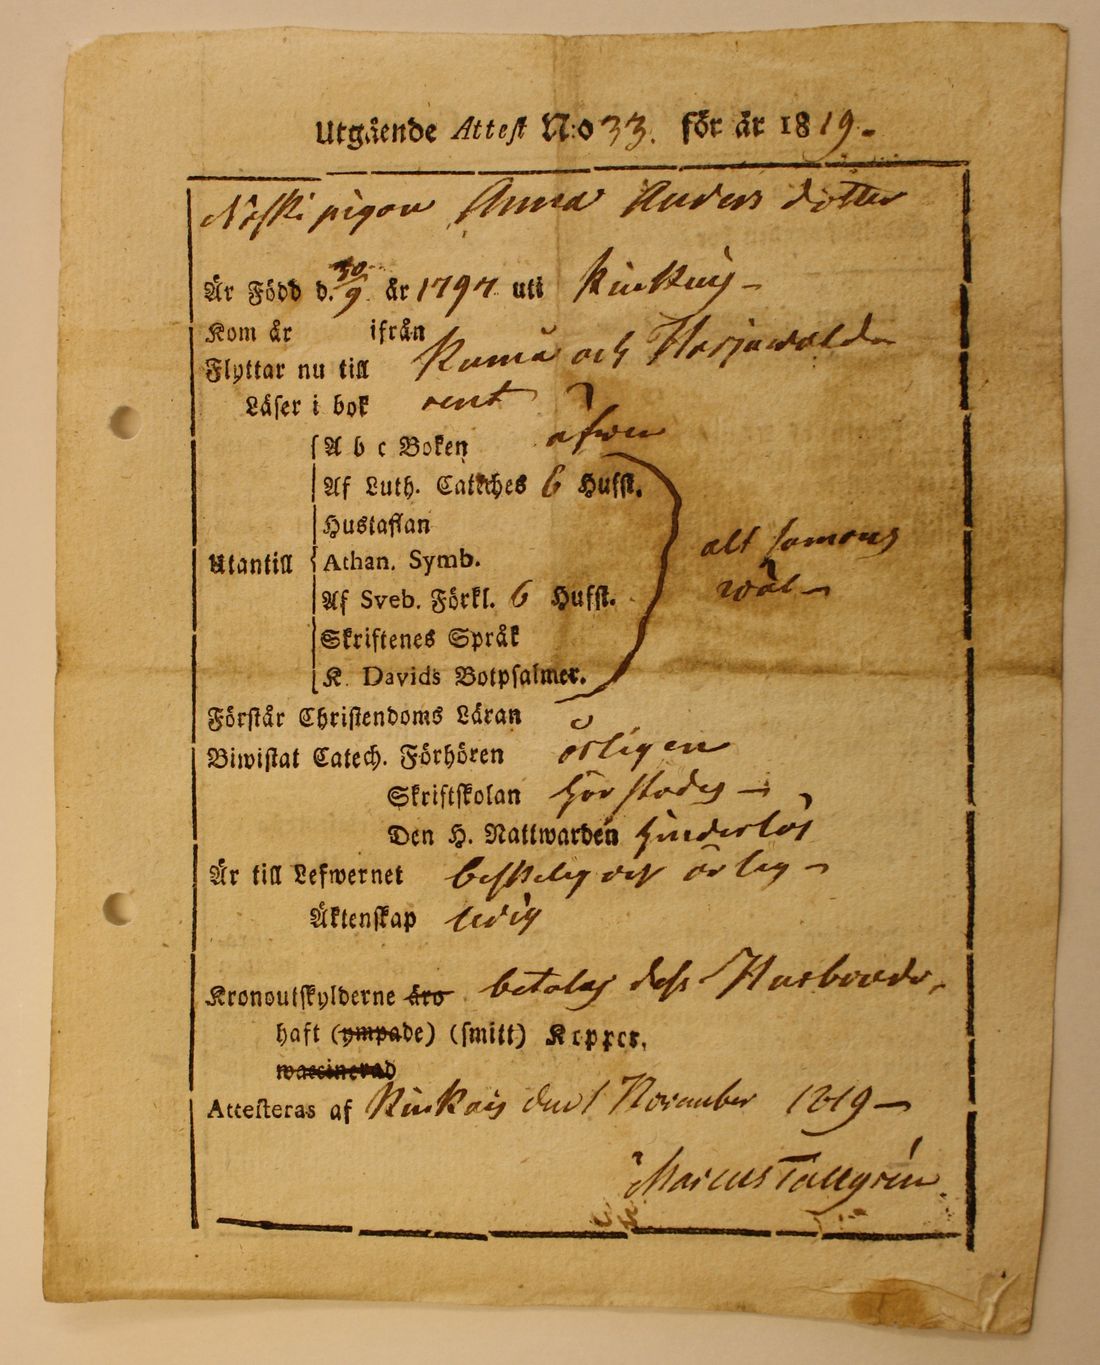 Utgående Attest N:o 33. för år 1819.
pigan Anna Anders dotter
Är Född d. 30/9 år 1797 uti Kiukais
Kom år ifrån
Flyttar nu till Kumå och Harjawalda
Läser i bok rent
A b c Boken äfwen
Af Luth. Cateches 6 Hufst.
Hustaflan
alt samons
Utantill Athan. Symb.
wäl
Af Sveb. Förkl. 6 Hufst.
Skriftenes Språk
K. Davids Botpsalmer.
Förstår Christendoms Läran
Biwistat Catech. Förhören årligen
Skriftskolan härstädes
Den H. Nattwarden hinderlös
Är till Lefwernet beskelig och ärlig
Äktenskap ledig
Kronoutskylderne äro betalas dess Husbonde
haft (ympade) (smitt) Kopper.
waccinerad
Attesteras af Kiukais den 1 November 1819
Marcus Tallgrén